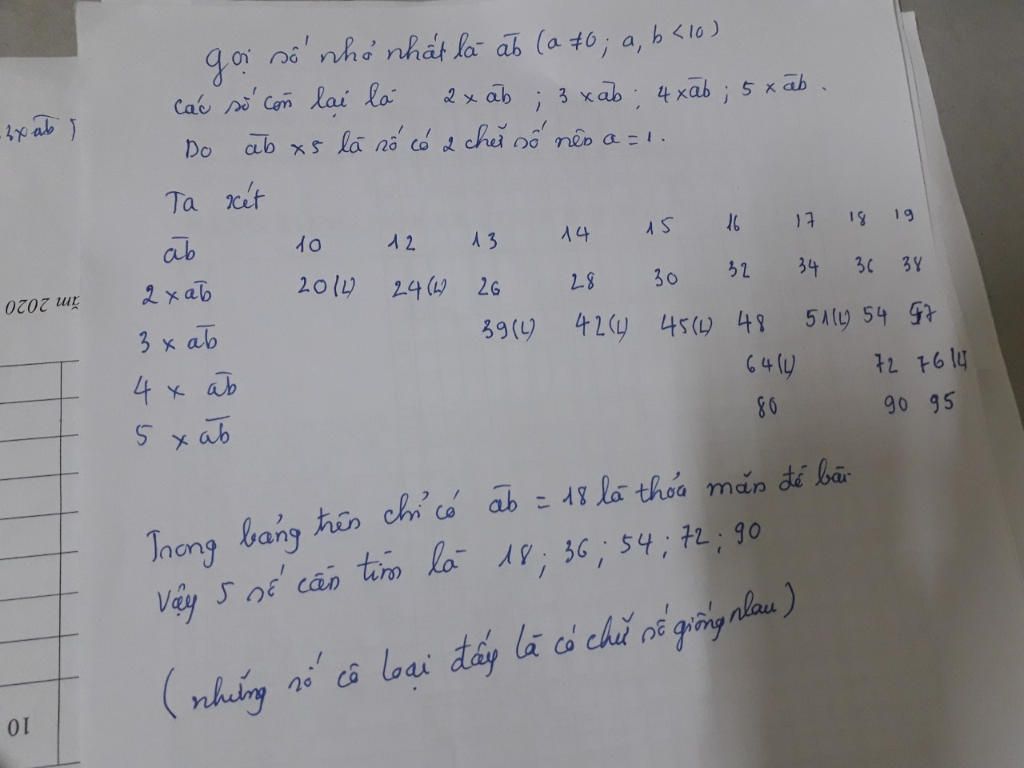 Gọi số nhỏ nhất là ab̅ (a≠0; a, b < 10)
Các số còn lại là 2 x ab̅ ; 3 x ab̅ ; 4 x ab̅ ; 5 x ab̅ .
3 x ab̅
Do ab̅ x 5 là số có 2 chữ số nên a = 1.
Ta xét
ab̅ 10 12 13 14 15 16 17 18 19
2 x ab̅ 20(L) 24(L) 26 28 30 32 34 36 38
3 x ab̅ 39(L) 42(L) 45(L) 48 51(L) 54 57
4 x ab̅ 64(L) 72 76(L)
5 x ab̅ 80 90 95
ăm 2020
Trong bảng trên chỉ có ab̅ = 18 là thỏa mãn đề bài
Vậy 5 số cần tìm là 18 ; 36 ; 54 ; 72 ; 90
(những số cô loại đấy là có chữ số giống nhau)
10